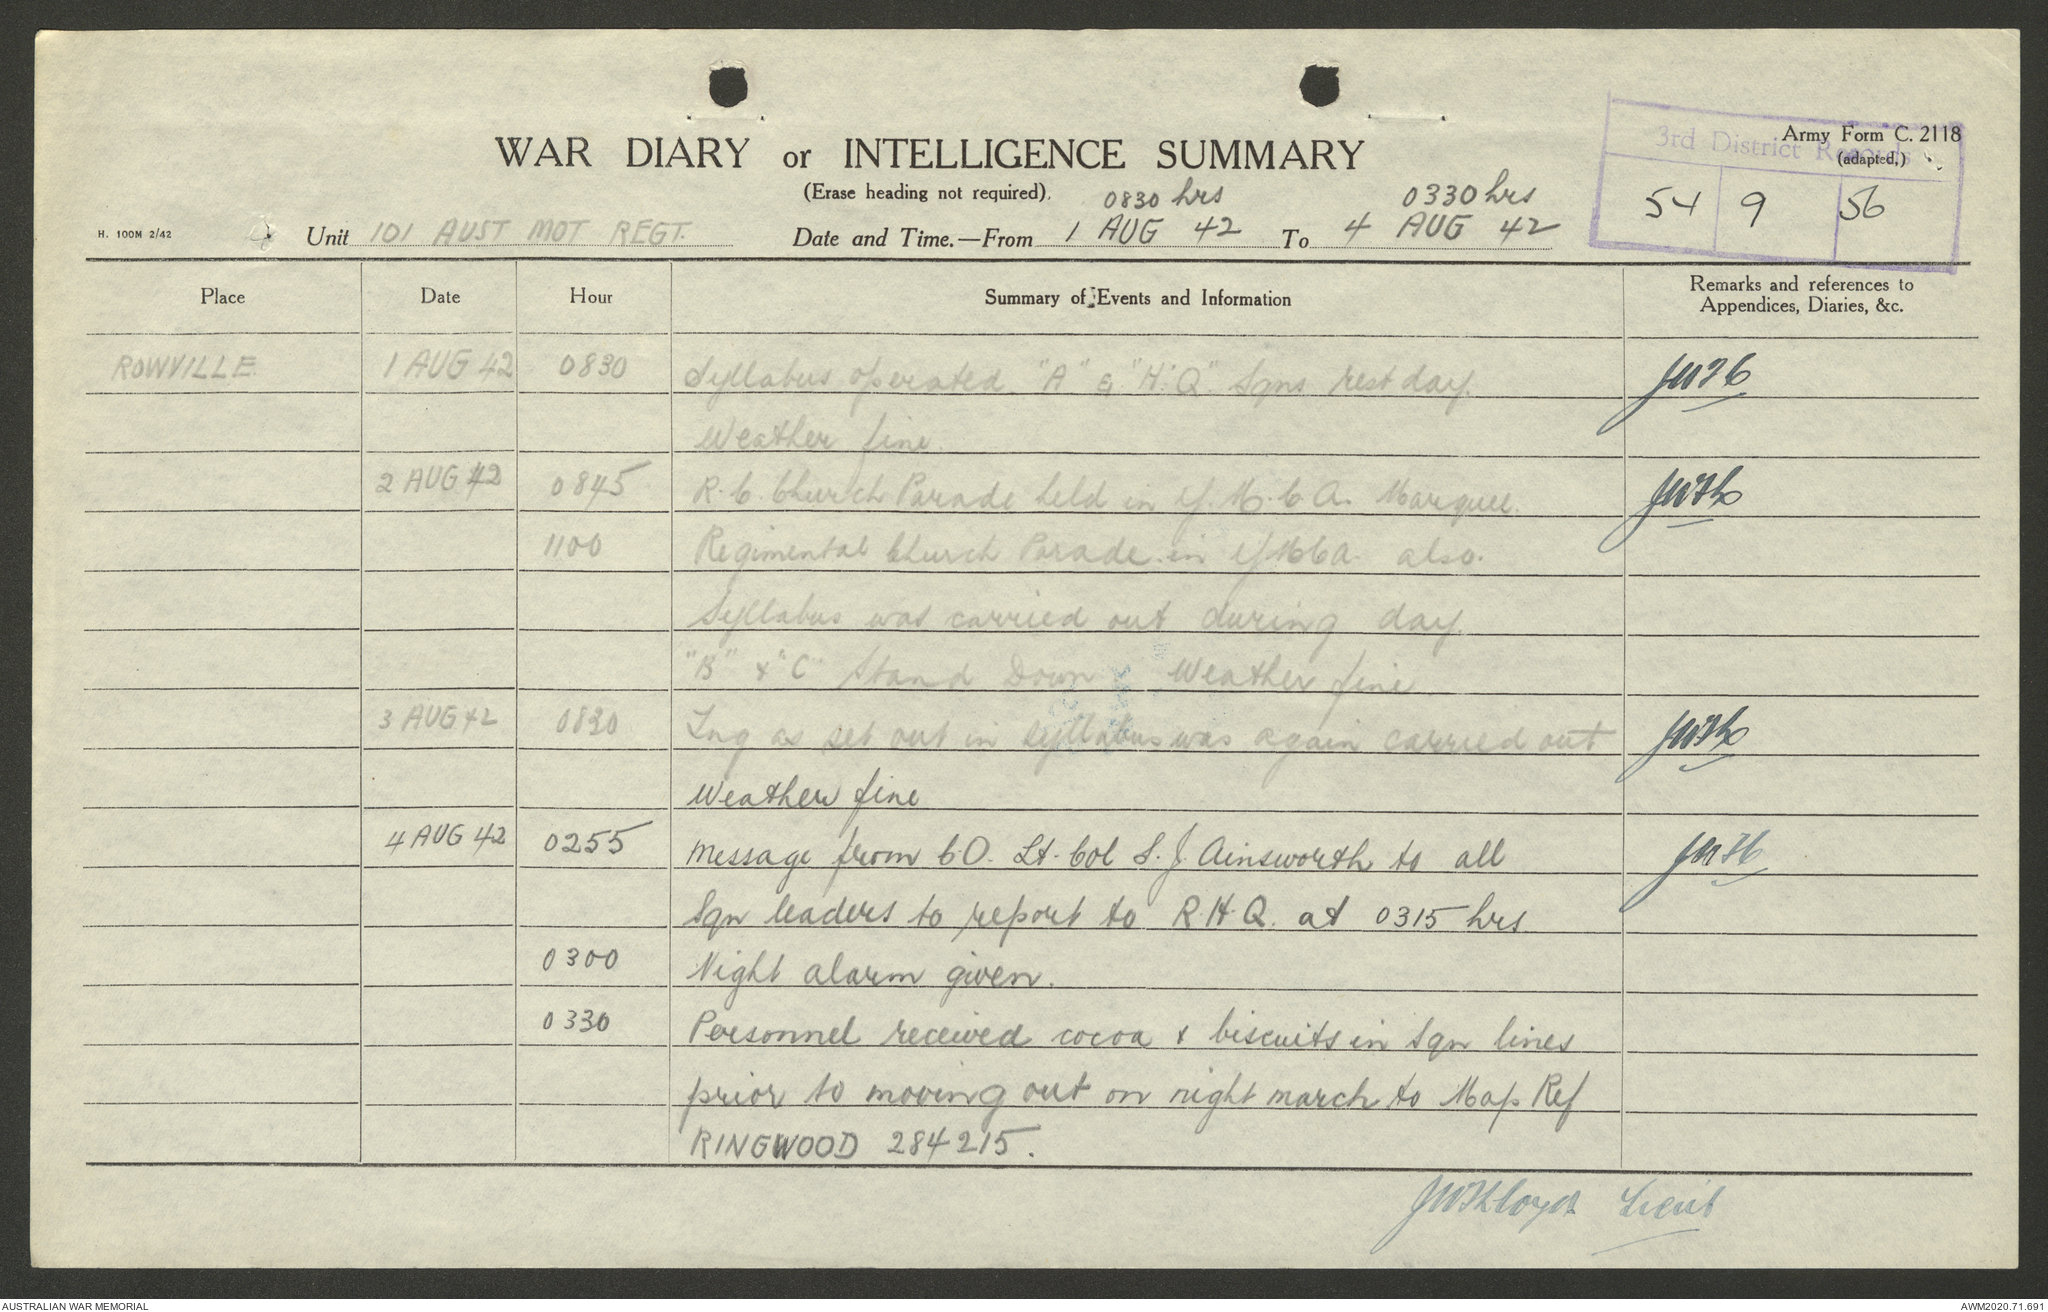 3rd District Records
Army Form C. 2118
(adapted,)
WAR DIARY or INTELLIGENCE SUMMARY
(Erase heading not required).
54 9 56
H. 100M 2/42
0830 hrs 0330 hrs
Unit 101 AUST MOT REGT. Date and Time.—From 1 AUG 42 To 4 AUG 42
Place Date Hour Summary of Events and Information Remarks and references to
Appendices, Diaries, &c.
ROWVILLE 1 AUG 42 0830 Syllabus operated. "A" & "H.Q". Sqns rest day.
Weather fine.
2 AUG 42 0845 R.C. Church Parade held in Y.M.C.A. Marquee.
1100 Regimental Church Parade in YMCA. also.
Syllabus was carried out during day.
"B" & "C" Stand Down Weather fine.
3 AUG 42 0830 Tng as set out in syllabus was again carried out
Weather fine
4 AUG 42 0255 Message from C.O. Lt. Col S. J. Ainsworth to all
Sqn leaders to report to R.H.Q. at 0315 hrs
0300 Night alarm given.
0330 Personnel received cocoa & biscuits in Sqn lines
prior to moving out on night march to Map Ref
RINGWOOD 284215.
Lieut
AUSTRALIAN WAR MEMORIAL
AWM2020.71.691